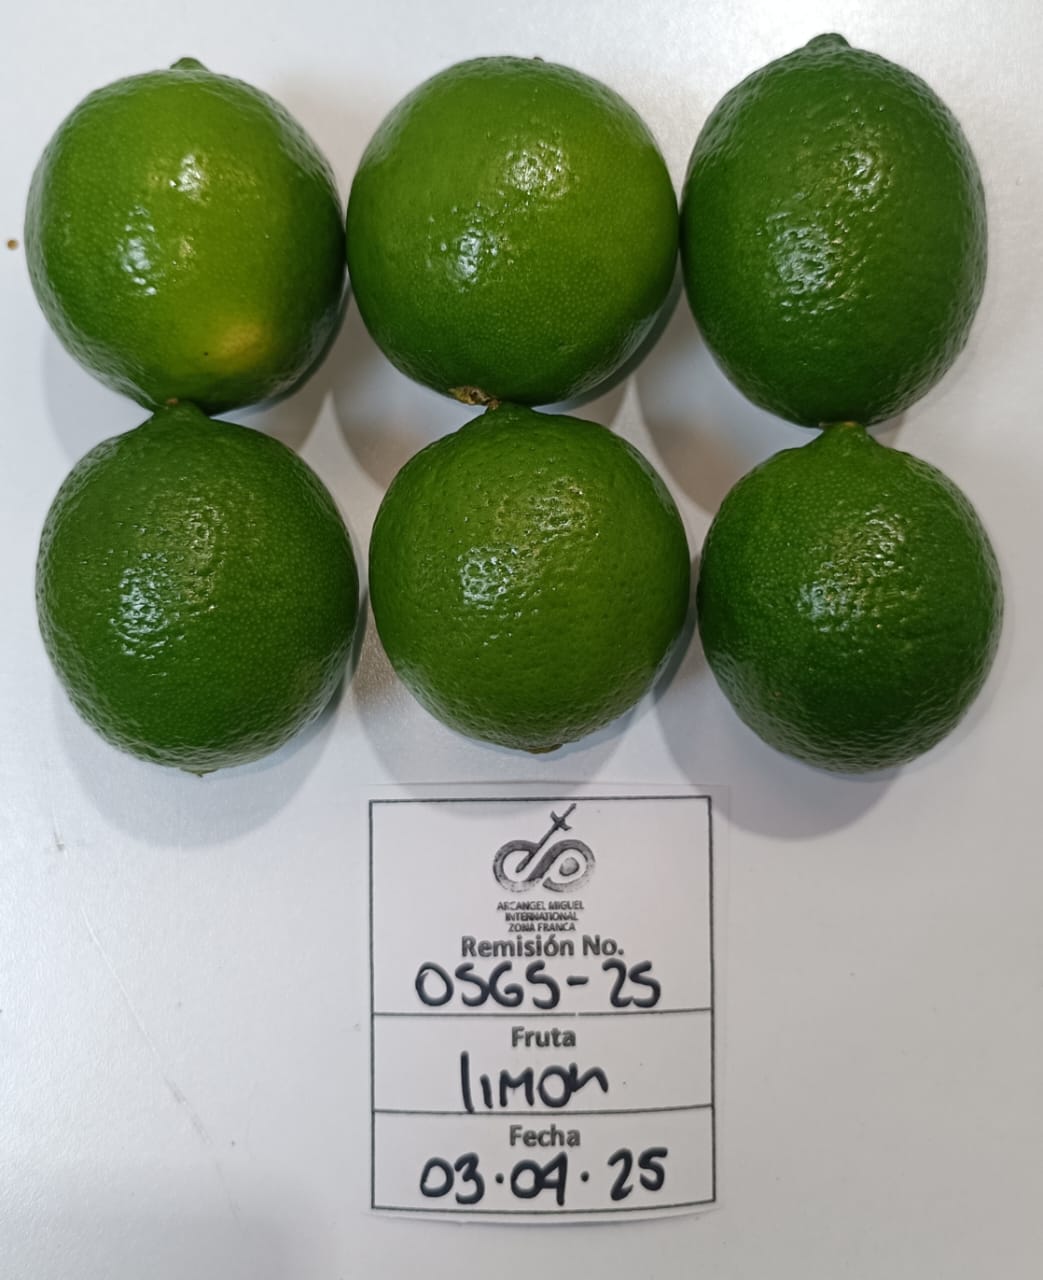 ARCANGEL MIGUEL
INTERNATIONAL
ZONA FRANCA
Remisión No.
0565-25
Fruta
limon
Fecha
03.04.25